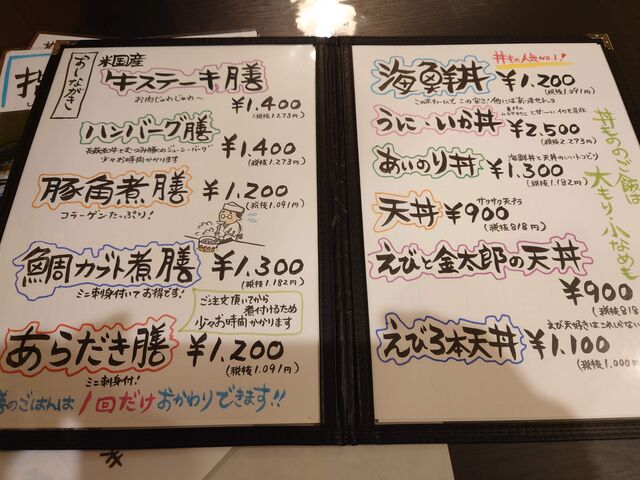 おしながき
米国産
牛ステーキ膳
お肉じゅわじゅわ〜
¥1.400
(税抜1.273円)
ハンバーグ膳
少々お時間かかります
¥1.400
(税抜1.273円)
豚角煮膳
コラーゲンたっぷり!
¥1.200
(税抜1.091円)
鯛カブト煮膳
ミニ刺身付いてお得です!
¥1.300
(税抜1.182円)
ご注文頂いてから
煮付けるため
少々お時間かかります
あらだき膳
ミニ刺身付!
¥1.200
(税抜1.091円)
のごはんは1回だけおかわりできます!!
丼もの人気NO.1!
海鮮丼
¥1.200
(税抜1.091円)
このボリュームで、この安さ!他にはありませんヨ
うに・いか丼
¥2.500
(税抜2.273円)
あいのり丼
海鮮丼と天丼のいいトコどり
¥1.300
(税抜1.182円)
天丼
サクサク天プラ
¥900
(税抜818円)
えびと金太郎の天丼
¥900
(税抜818
えび3本天丼
えび天好きはこれしかない
¥1.100
(税抜1.000円)
丼もののご飯は
大もり・小なめも